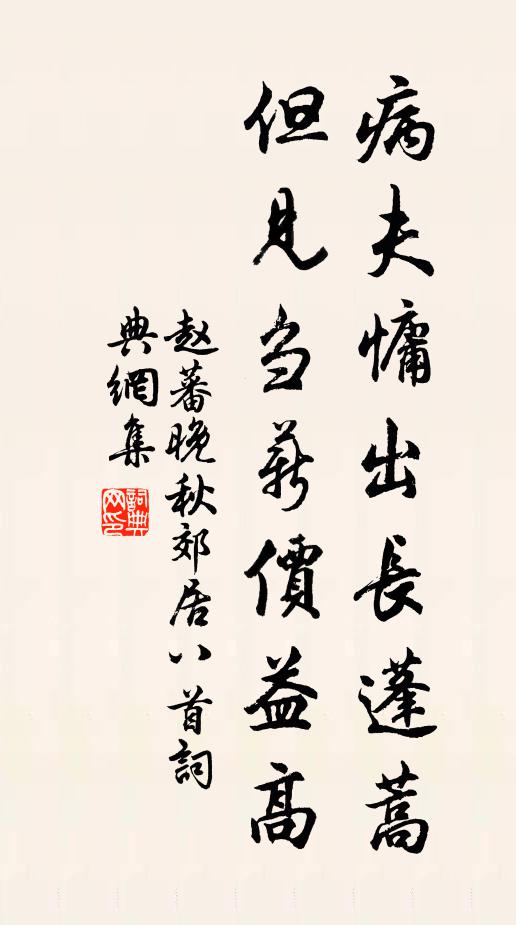 病夫慵出長蓬蒿
但見芻薪價益高
赵蕃晚秋郊居八首詞
典網集
詞典
网印